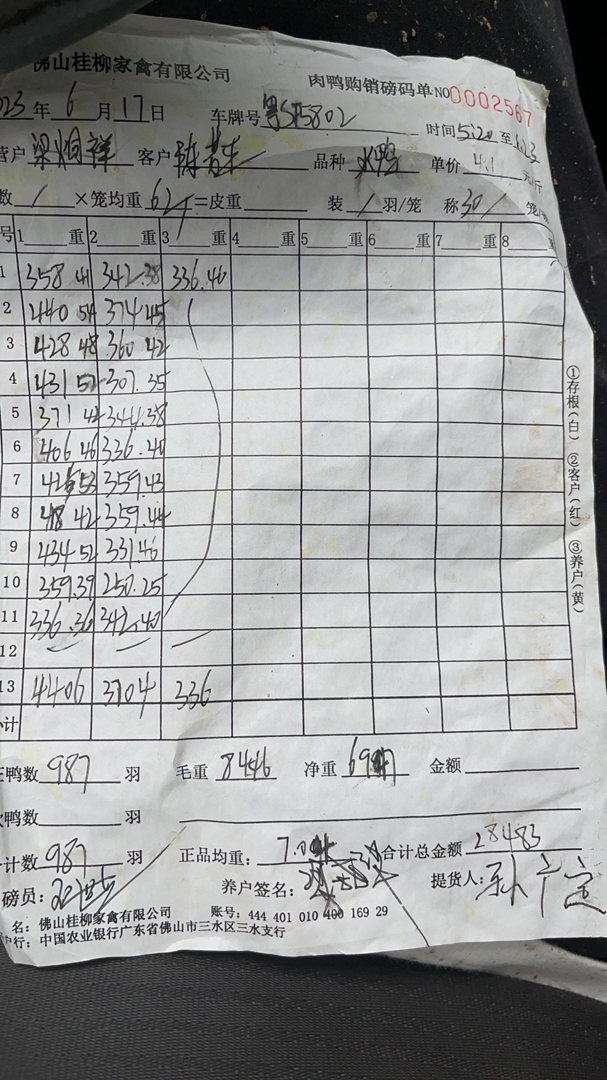 佛山桂柳家禽有限公司 肉鸭购销磅码单 NO 0002567
023 年 6 月 17 日 车牌号 粤 5802 时间 5:20 至
户 梁炳祥 客户 品种 水鸭 单价 4.1 元/斤
数 1 ×笼均重 62斤 =皮重 装 1 羽/笼 称 30/ 笼/
号 1 重 2 重 3 重 4 重 5 重 6 重 7 重 8 重
1 358 41 342.38 336.40
2 440 54 374 45
3 428 48 360 42
4 431 52 307.35
5 371 42 344.38
6 406 46 336.40
7 425 53 359.43
8 418 42 359.44
9 434 52 331 46
10 359.39 250.25
11 336.36 342.40
12
13 4406 3704 336
计
鸭数 987 羽 毛重 8446 净重 金额
鸭数 羽
计数 987 羽 正品均重: 合计总金额 28483
磅员: 养户签名: 提货人:
名: 佛山桂柳家禽有限公司 账号: 444 401 010 400 169 29
户行: 中国农业银行广东省佛山市三水区三水支行
①存根(白) ②客户(红) ③养户(黄)